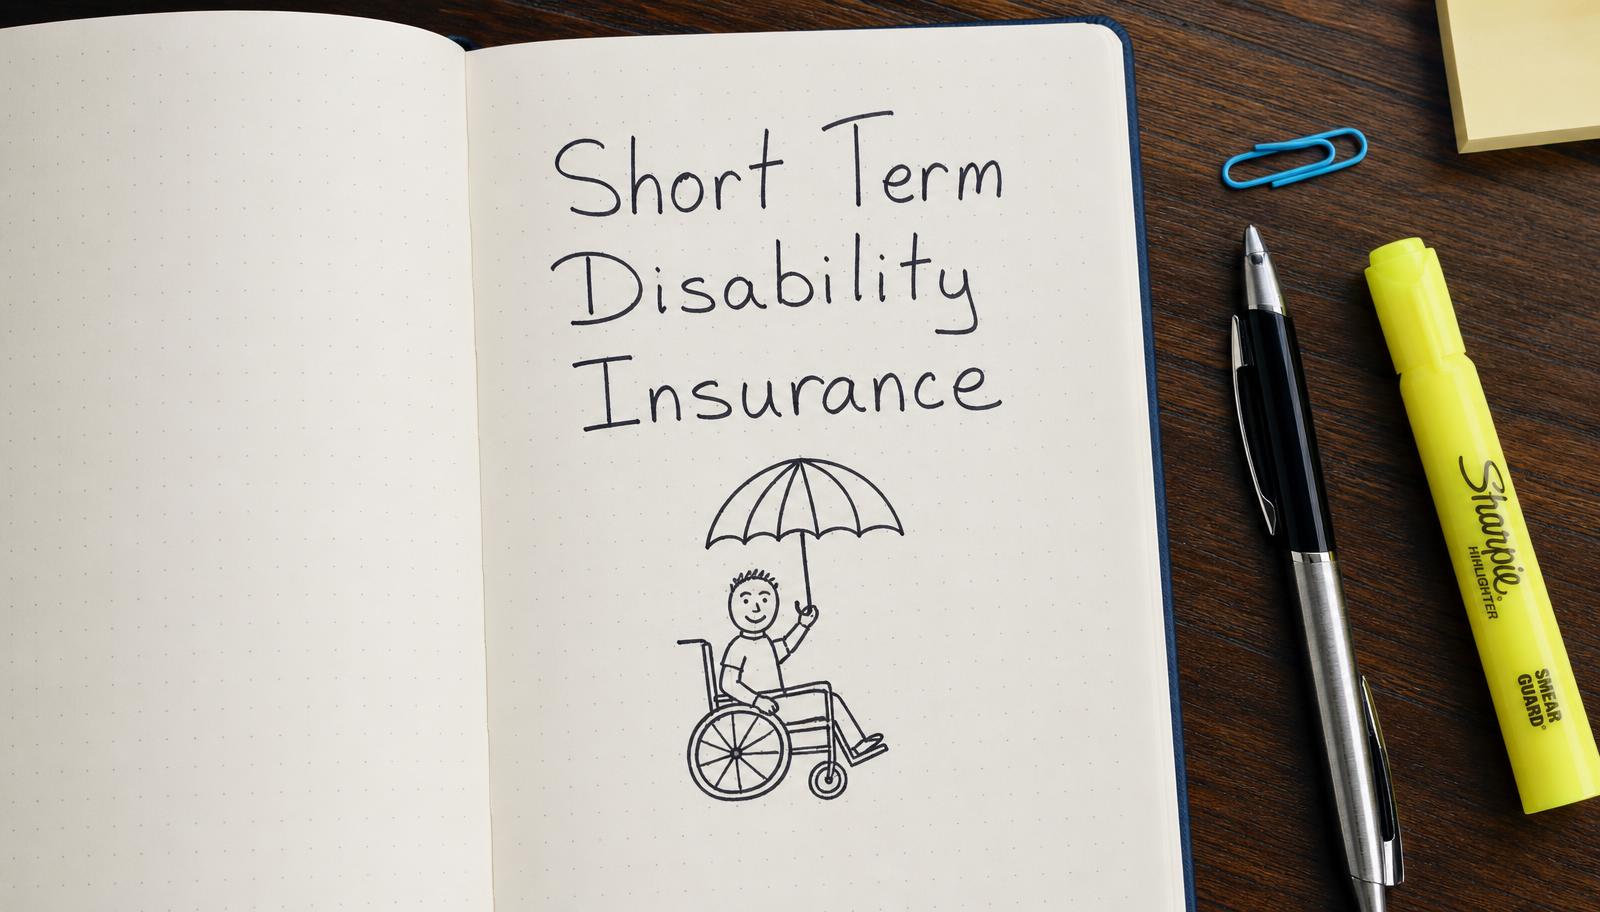 Short Term
Disability
Insurance
Sharpie®
HIHLIGHTER
SMEAR
GUARD®